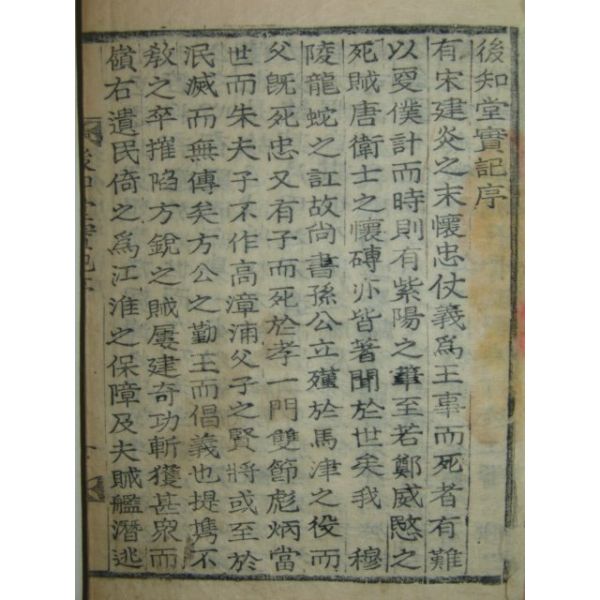 後知堂實記序
有宋建炎之末懷忠仗義爲王事而死者有難
以更僕計而時則有紫陽之筆至若鄭威愍之
死賊唐衛士之懷磚亦皆著聞於世矣我 穆
陵龍蛇之訌故尚書孫公立殣於馬津之役而
父旣死忠又有子而死於孝一門雙節彪炳當
世而朱夫子不作高漳浦父子之賢將或至於
泯滅而無傳矣方公之勤王而倡義也提携不
教之卒摧陷方銳之賊屢建奇功斬獲甚衆而
嶺右遺民倚之爲江淮之保障及夫賊艦潛逃